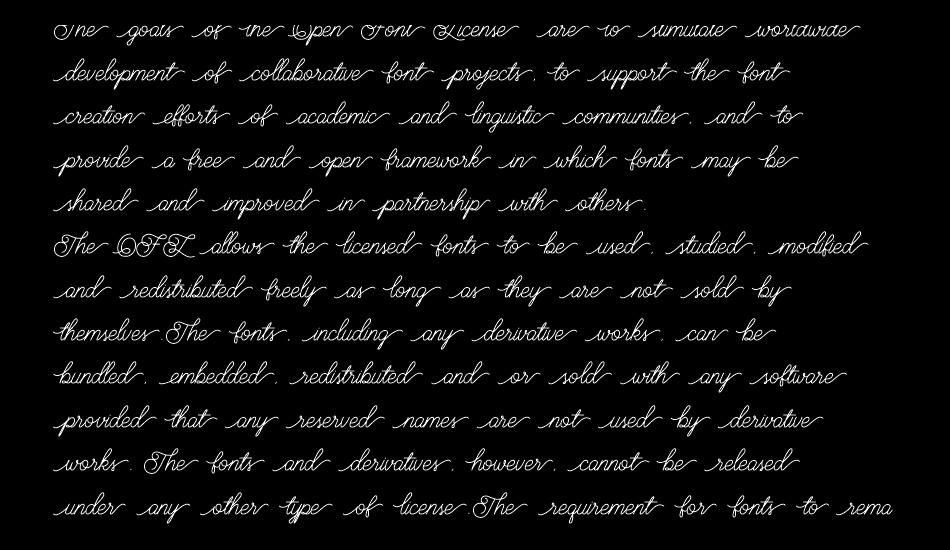 The goals of the Open Font License are to stimulate worldwide
development of collaborative font projects, to support the font
creation efforts of academic and linguistic communities, and to
provide a free and open framework in which fonts may be
shared and improved in partnership with others.
The OFL allows the licensed fonts to be used, studied, modified
and redistributed freely as long as they are not sold by
themselves.The fonts, including any derivative works, can be
bundled, embedded, redistributed and or sold with any software
provided that any reserved names are not used by derivative
works. The fonts and derivatives, however, cannot be released
under any other type of license.The requirement for fonts to rema